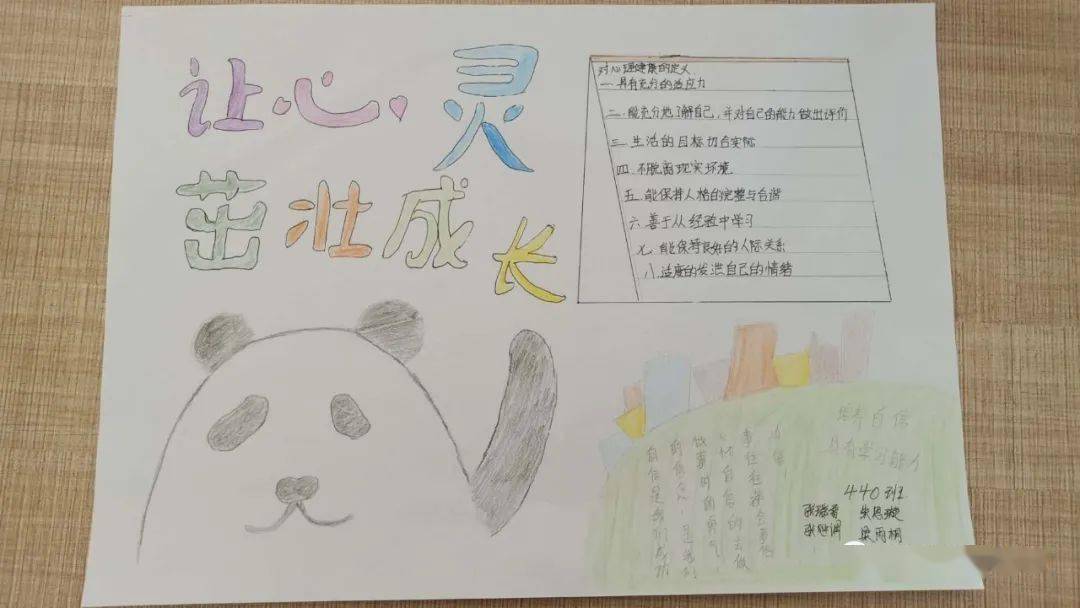 让心灵
茁壮成长
对心理健康的定义
一.具有充分的适应力
二.能充分地了解自己,并对自己的能力做出评价
三.生活的目标切合实际
四.不脱离现实环境
五.能保持人格的完整与合谐
六.善于从经验中学习
七.能保持良好的人际关系
八.适度的发泄自己的情绪
培养自信
具有学习能力
自信是我们成功
做事用的勇气,
心怀自信的去做
440班